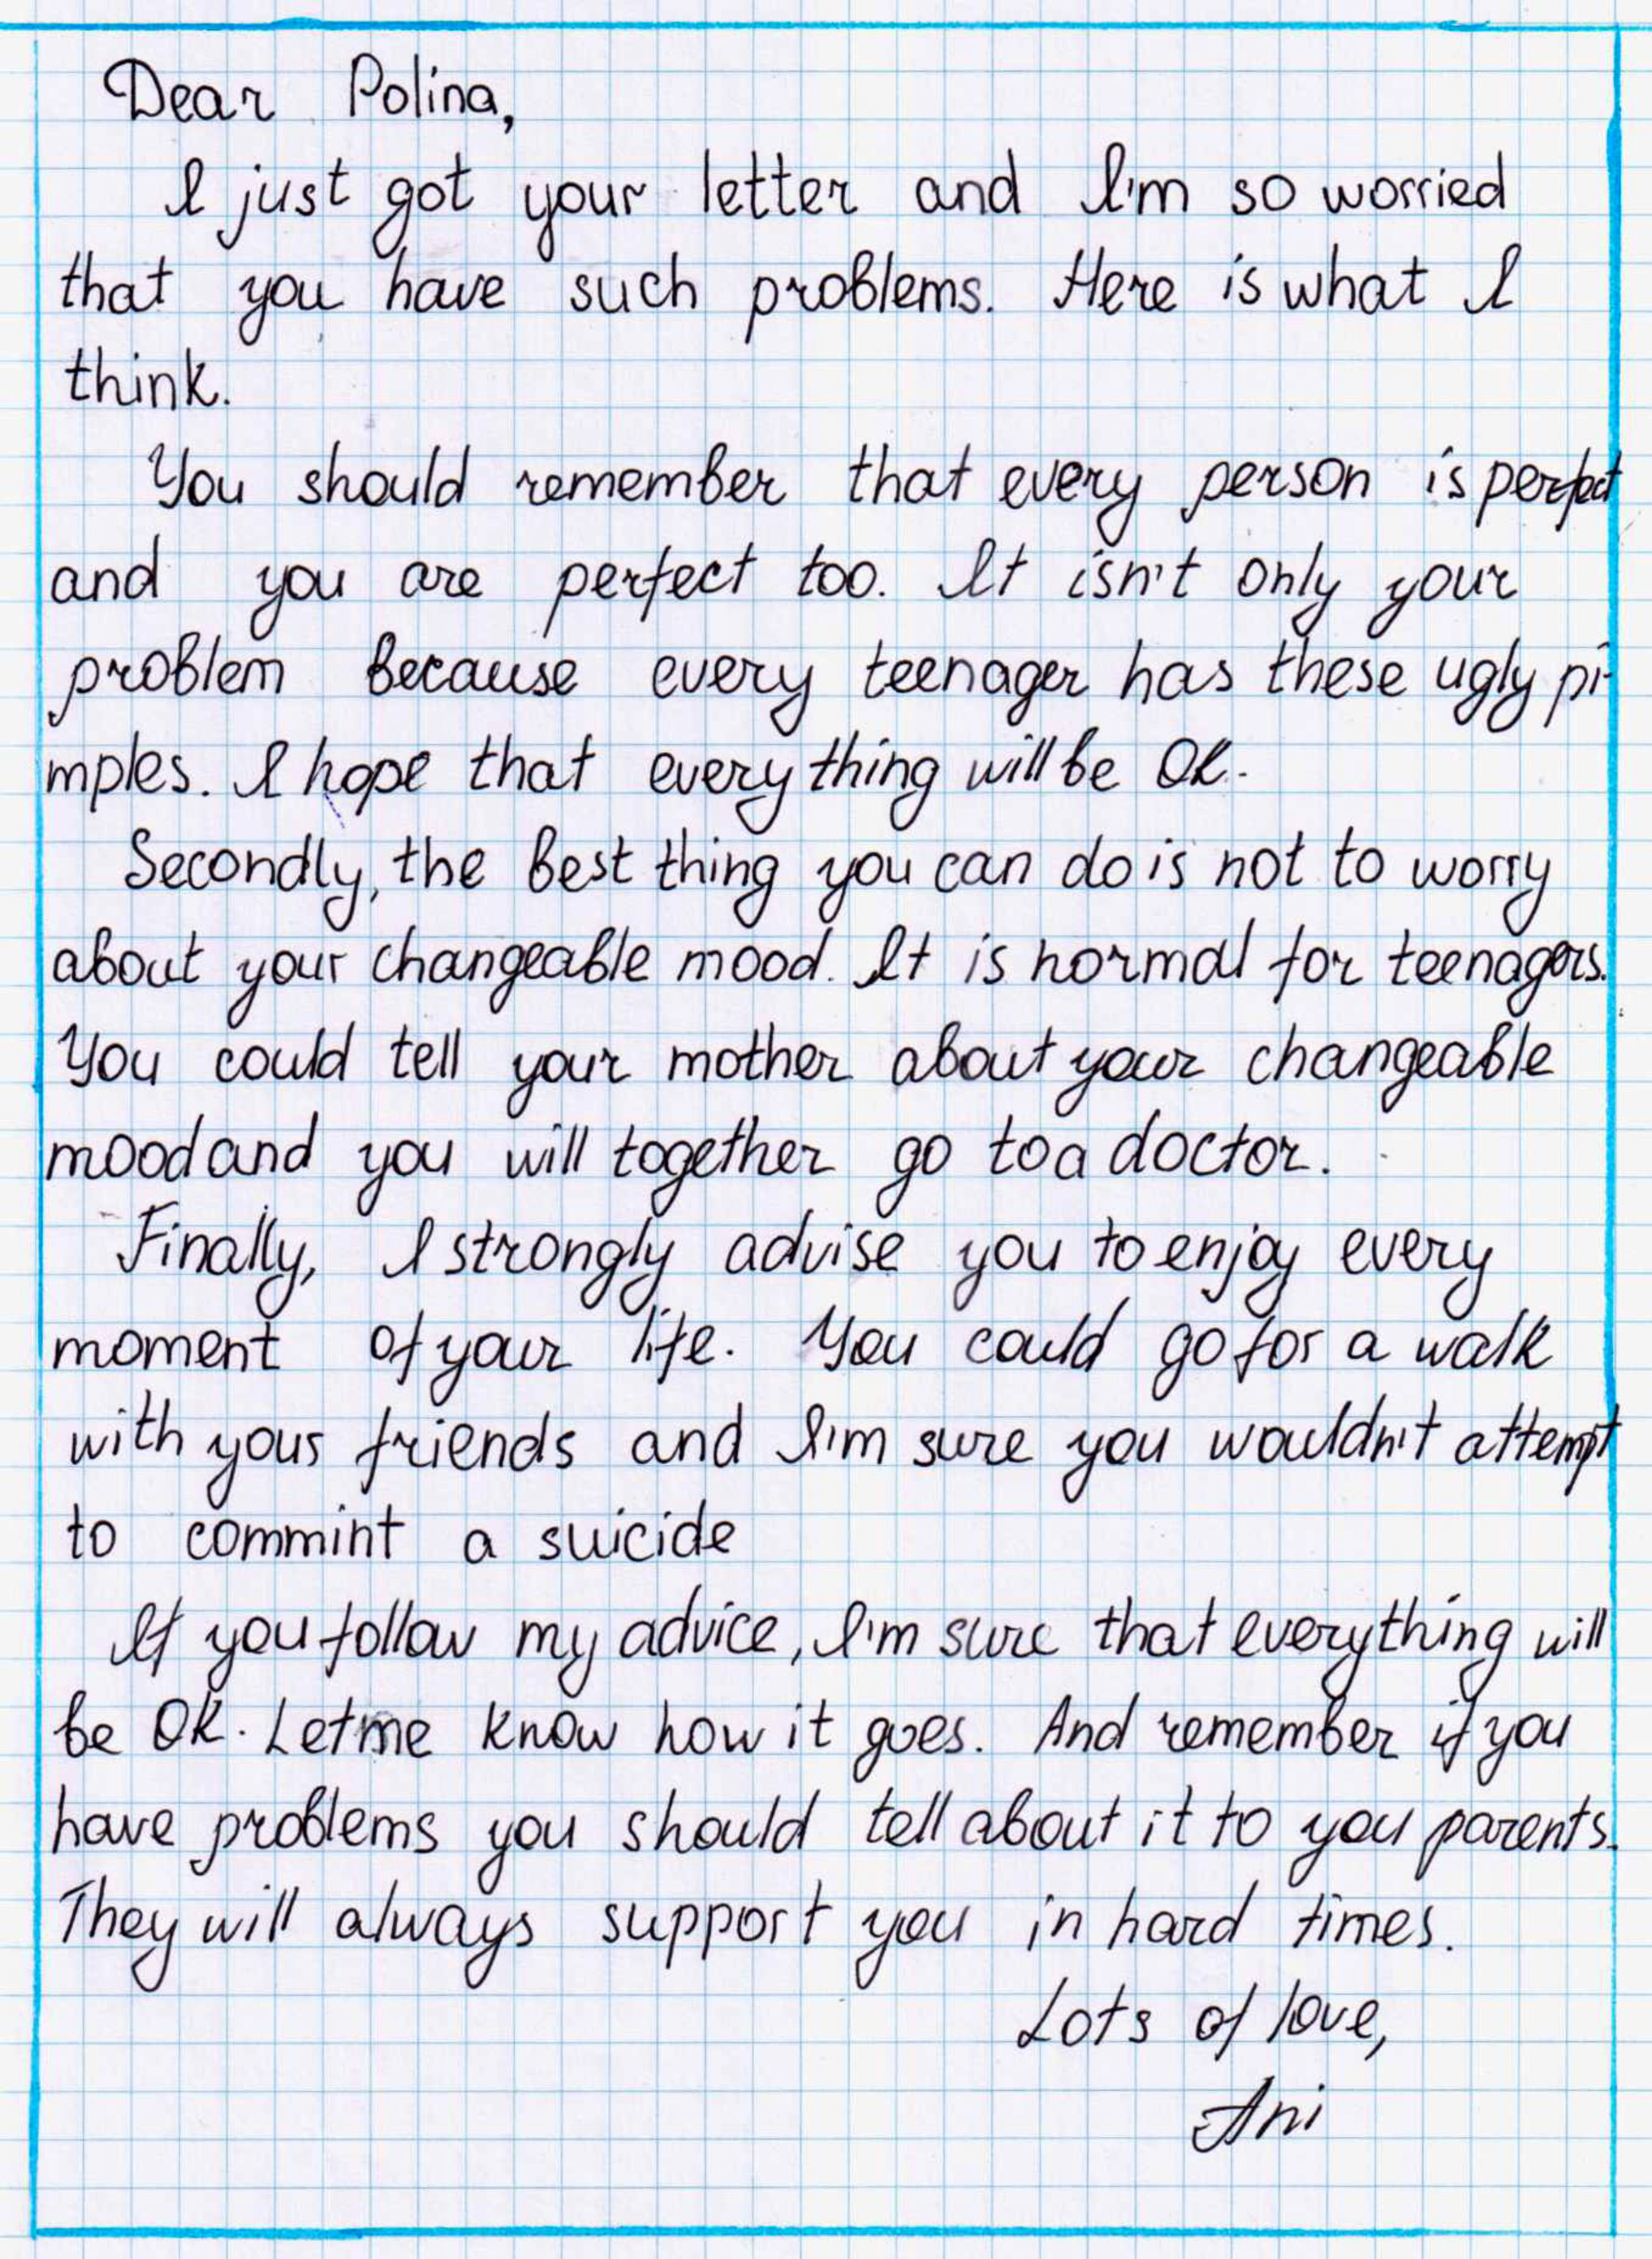 Dear Polina,
I just got your letter and I'm so worried
that you have such problems. Here is what I
think.
You should remember that every person is perfect
and you are perfect too. It isn't only your
problem because every teenager has these ugly pi-
mples. I hope that everything will be OK.
Secondly, the best thing you can do is not to worry
about your changeable mood. It is normal for teenagers.
You could tell your mother about your changeable
mood and you will together go to a doctor.
Finally, I strongly advise you to enjoy every
moment of your life. You could go for a walk
with your friends and I'm sure you wouldn't attempt
to commint a suicide
If you follow my advice, I'm sure that everything will
be OK. Let me know how it goes. And remember if you
have problems you should tell about it to you parents.
They will always support you in hard times.
Lots of love,
Ani